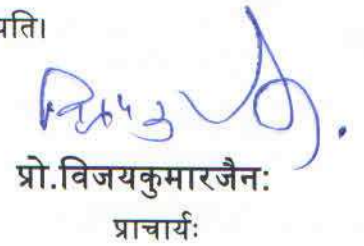 पति।
प्रो.विजयकुमारजैनः
प्राचार्यः